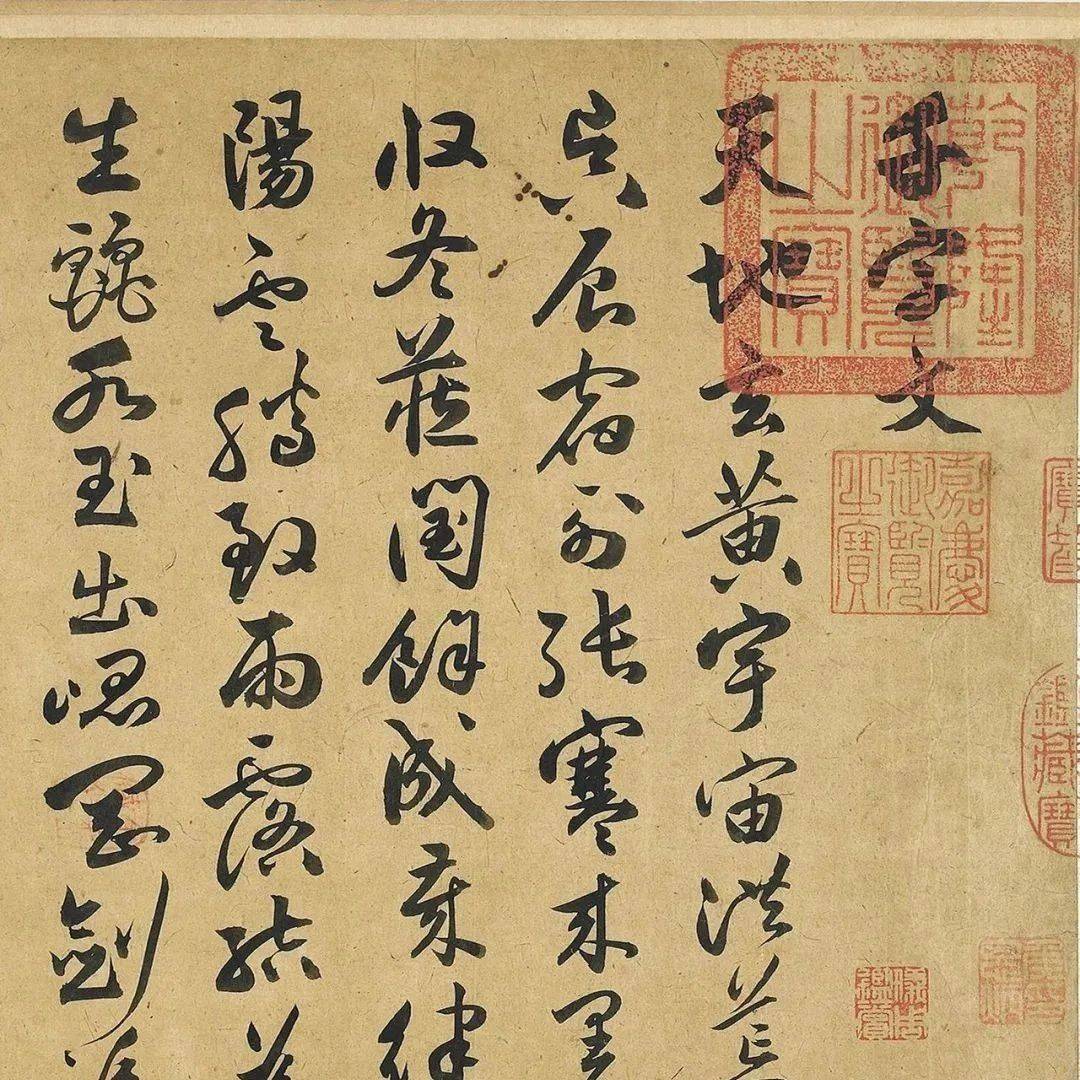 乾隆御覽之寶
嘉慶御覽之寶
鑑藏寶
字文
天地玄黃宇宙洪荒
昃辰宿列張寒來
收冬藏閏餘成歲律
陽雲騰致雨露結為
生麗水玉出崐岡劍